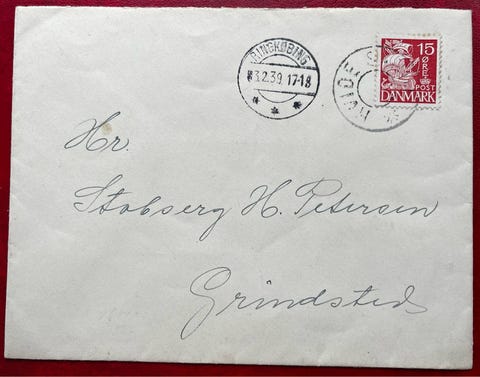 RINGKØBING
3.2.39 17-18
HVIDE
15
ØRE
POST
DANMARK
Hr.
Stobserg H. Petersen
Grindsted